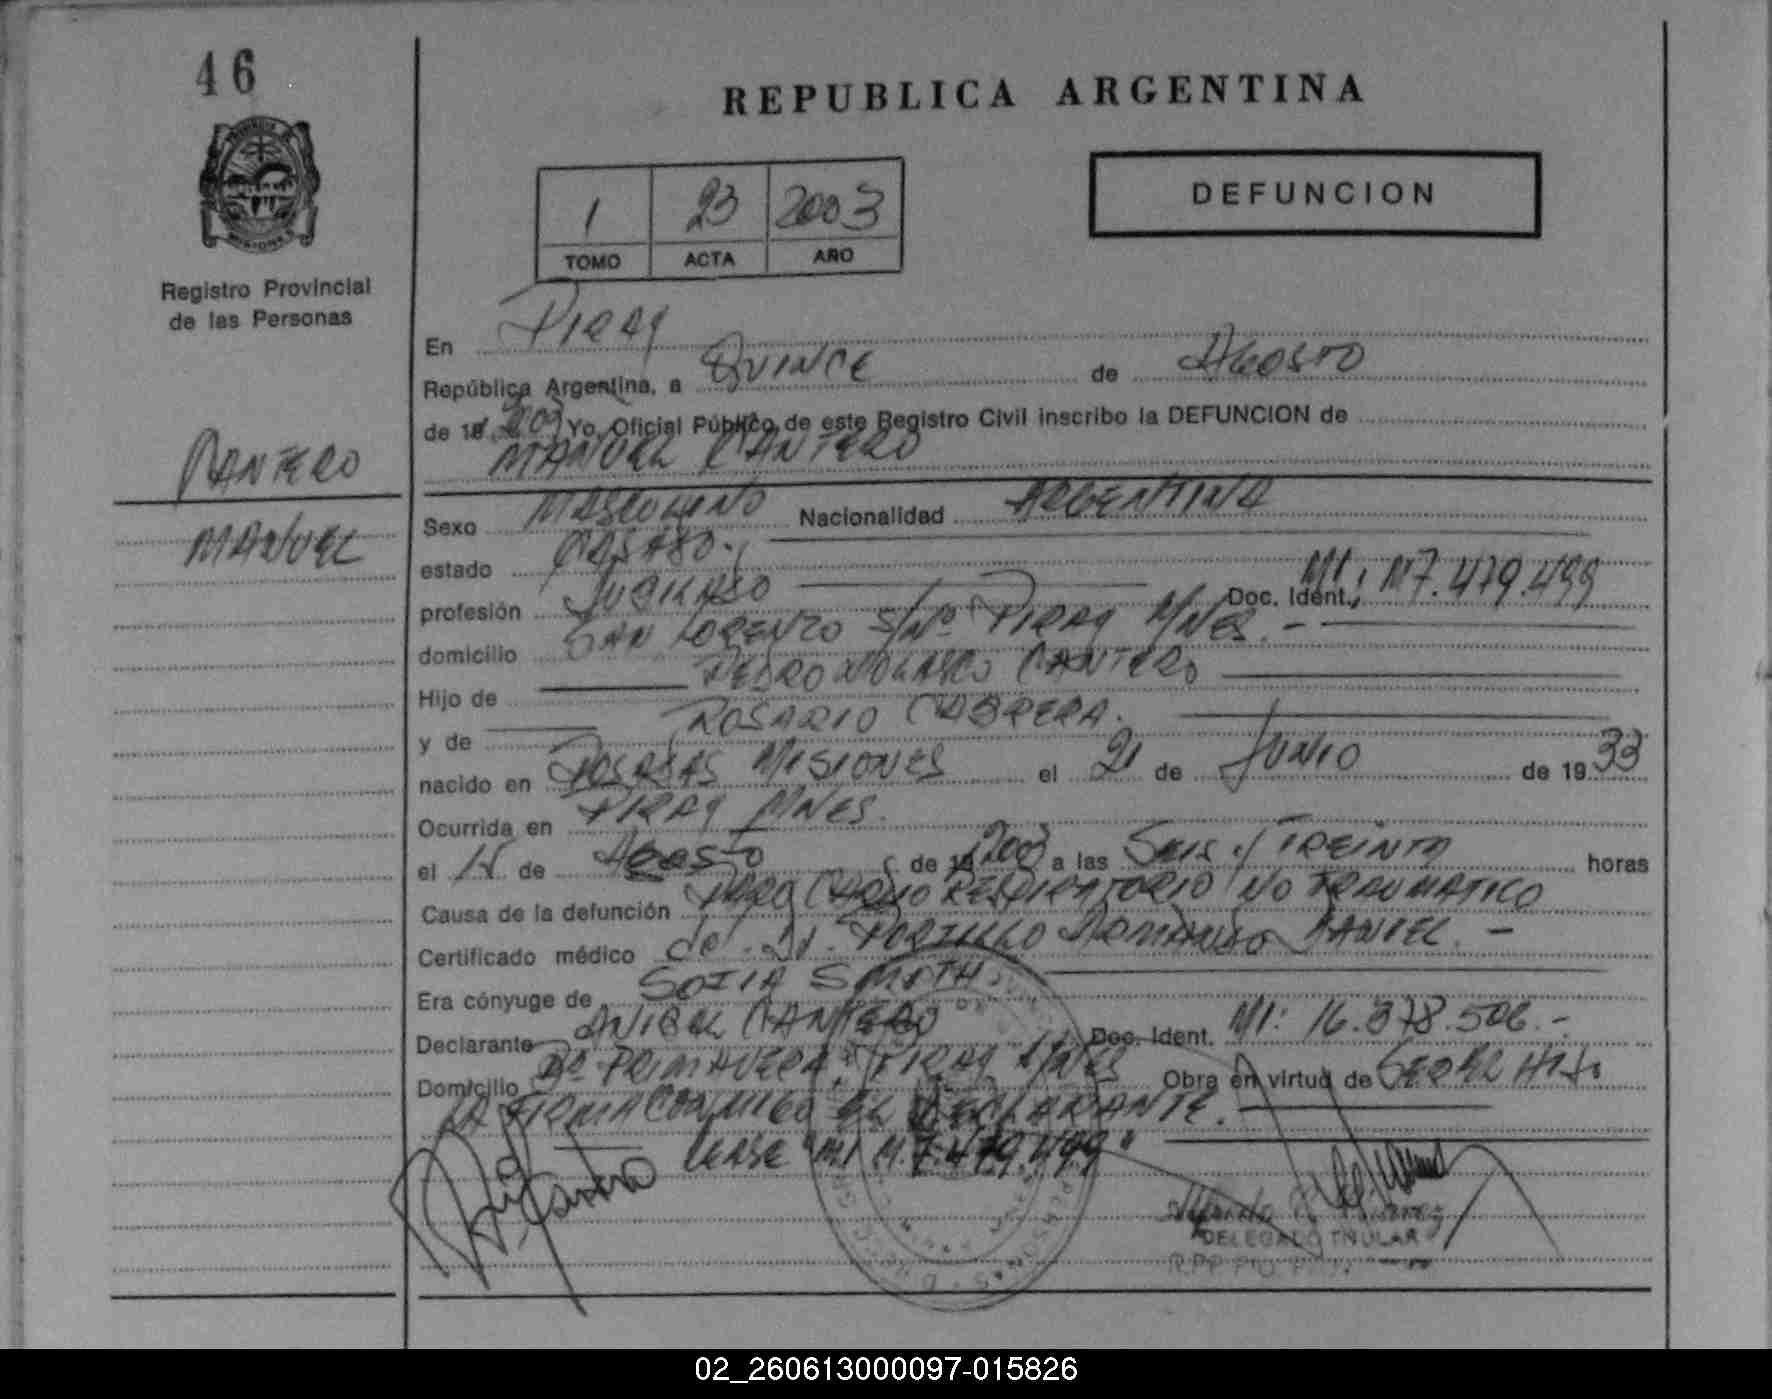 46
REPUBLICA ARGENTINA
DEFUNCION
1 23 2003
TOMO ACTA AÑO
MISIONES
Registro Provincial
de las Personas
CANTERO
MANUEL
En PIRAY
República Argentina, a QUINCE de AGOSTO
de 19 2003 Yo, Oficial Público de este Registro Civil inscribo la DEFUNCION de
MANUEL CANTERO
Sexo MASCULINO Nacionalidad ARGENTINA
estado CASADO.
profesión JUBILADO Doc. Ident. MI: M7.479.499
domicilio SAN LORENZO S/Nº PIRAY MNES. -
Hijo de PEDRO NOLASCO CANTERO
y de ROSARIO CABRERA.
nacido en POSADAS MISIONES el 21 de JUNIO de 1933
Ocurrida en PIRAY MNES.
el 15 de AGOSTO de 19 2003 a las SEIS Y TREINTA horas
Causa de la defunción PARO CARDIO RESPIRATORIO NO TRAUMATICO
Certificado médico del Dr. PORTILLO ARMANDO DANIEL. -
Era cónyuge de SOFIA SMOTH.
Declarante ANIBAL CANTERO Doc. Ident. MI: 16.378.506.-
Domicilio Bº PRIMAVERA, PIRAY MNES Obra en virtud de SER EL HIJO
FIRMA CONMIGO EL DECLARANTE.
LEASE "MI M.7.479.499"
DELEGADO TITULAR
02_260613000097-015826